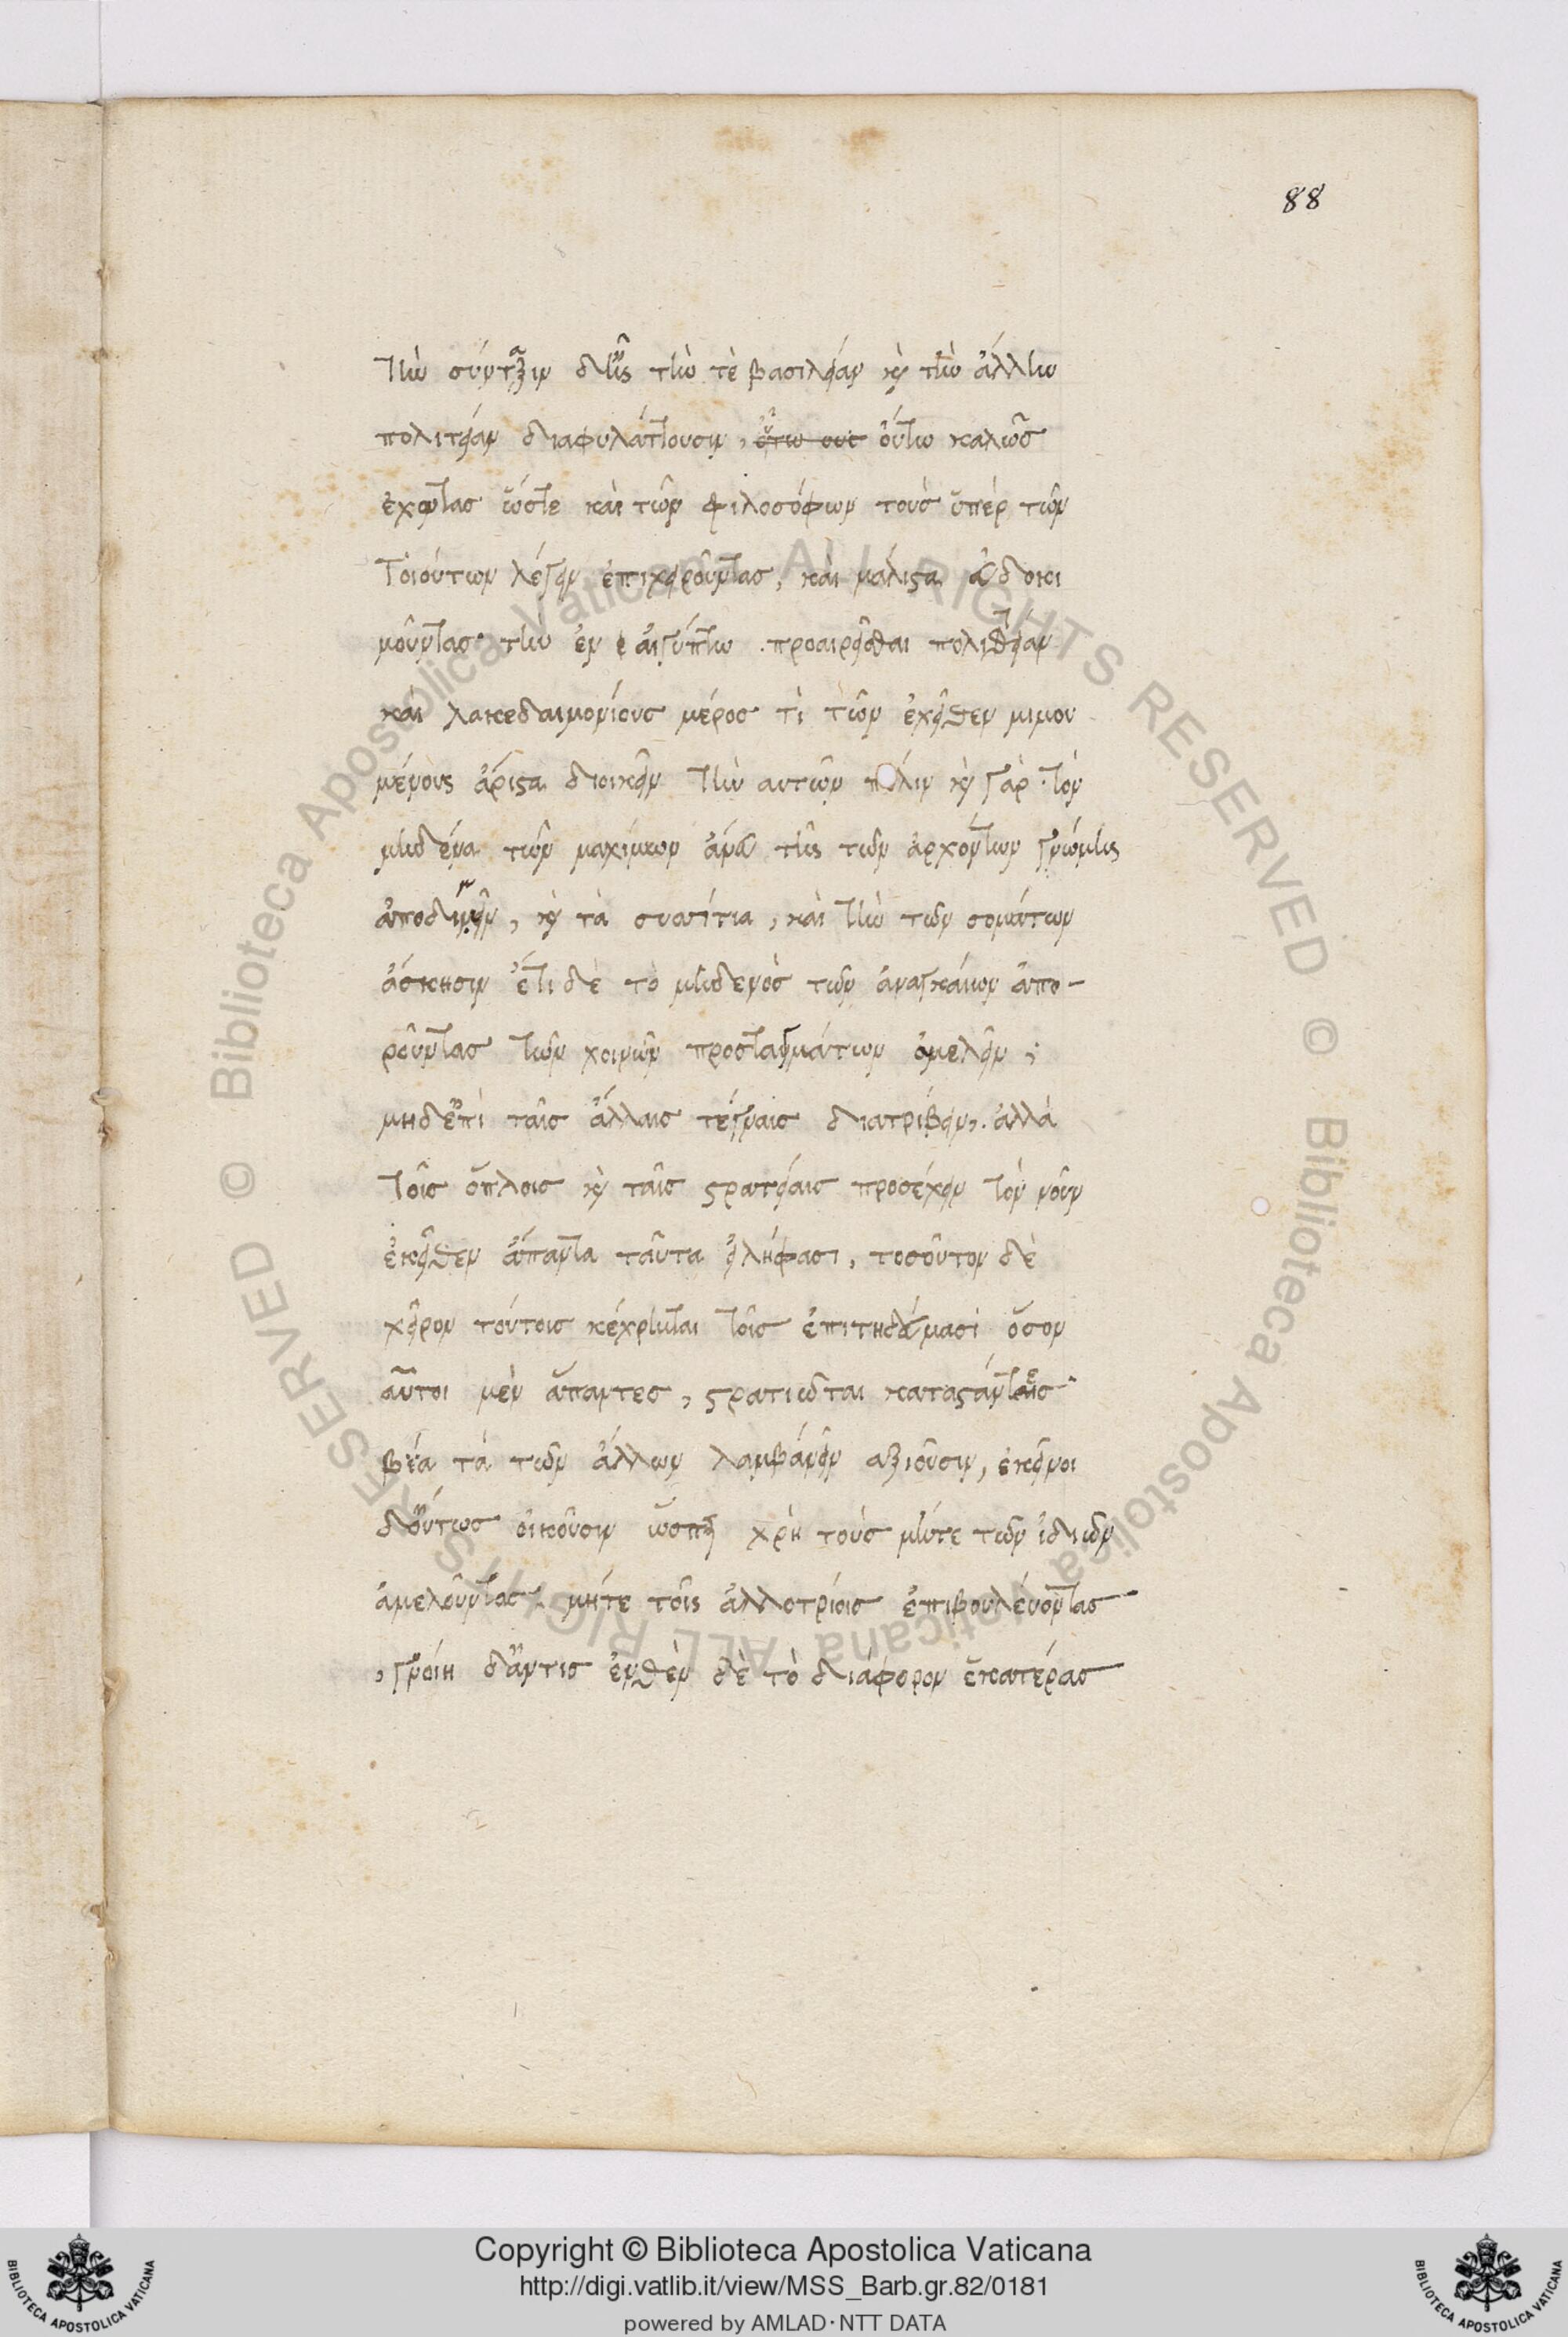 88
τὴν σύνταξιν δι' ἧς τὴν τὲ βασιλείαν καὶ τὴν ἄλλην
πολιτείαν διαφυλάττουσιν, οὕτω καλῶς
ἔχοντας ὥστε καὶ τῶν φιλοσόφων τοὺς ὑπὲρ τῶν
τοιούτων λέγειν ἐπιχειροῦντας, καὶ μάλιστα εὐδοκι
μοῦντας τὴν ἐν αἰγύπτω προαιρεῖσθαι πολιτείαν
καὶ λακεδαιμονίους μέρος τὶ τῶν ἐχεῖθεν μιμου
μένους ἄριστα διοικεῖν τὴν αυτῶν πόλιν καὶ γὰρ τὸν
μηδένα τῶν μαχίμων ἄνευ τῆς τῶν ἀρχόντων γνώμης
ἀποδημεῖν, καὶ τὰ συσσίτια, καὶ τὴν τῶν σομάτων
ἄσκησιν ἔτι δὲ τὸ μηδενὸς τῶν ἀναγκαίων ἀπο-
ροῦντας τῶν χοινῶν προσταγμάτων ἀμελεῖν,
μηδ' ἐπὶ ταῖς ἄλλαις τέχναις διατρίβειν, ἀλλὰ
τοῖς ὅπλοις καὶ ταῖς στρατείαις προσέχειν τὸν νοῦν
ἐκεῖθεν ἅπαντα ταῦτα εἰλήφασι, τοσοῦτον δὲ
χεῖρον τούτοις κέχρηνται τοῖς ἐπιτηδεύμασι ὅσον
αὗτοι μὲν ἅπαντες, στρατιῶται καταστάντες
βία τὰ τῶν ἄλλων λαμβάνειν αξιοῦσιν, ἐκεῖνοι
δ' οὕτως οἰκοῦσιν ὥσπερ χρὴ τοὺς μήτε τῶν ἰδιων
ἀμελοῦντας μήτε τοῖς ἀλλοτρίοις ἐπιβουλέυοντας
, γνοίη δ' ἄν τις ἐνθὲν δὲ τὸ διάφορον ἑκατέρας
Copyright © Biblioteca Apostolica Vaticana
http://digi.vatlib.it/view/MSS_Barb.gr.82/0181
powered by AMLAD·NTT DATA